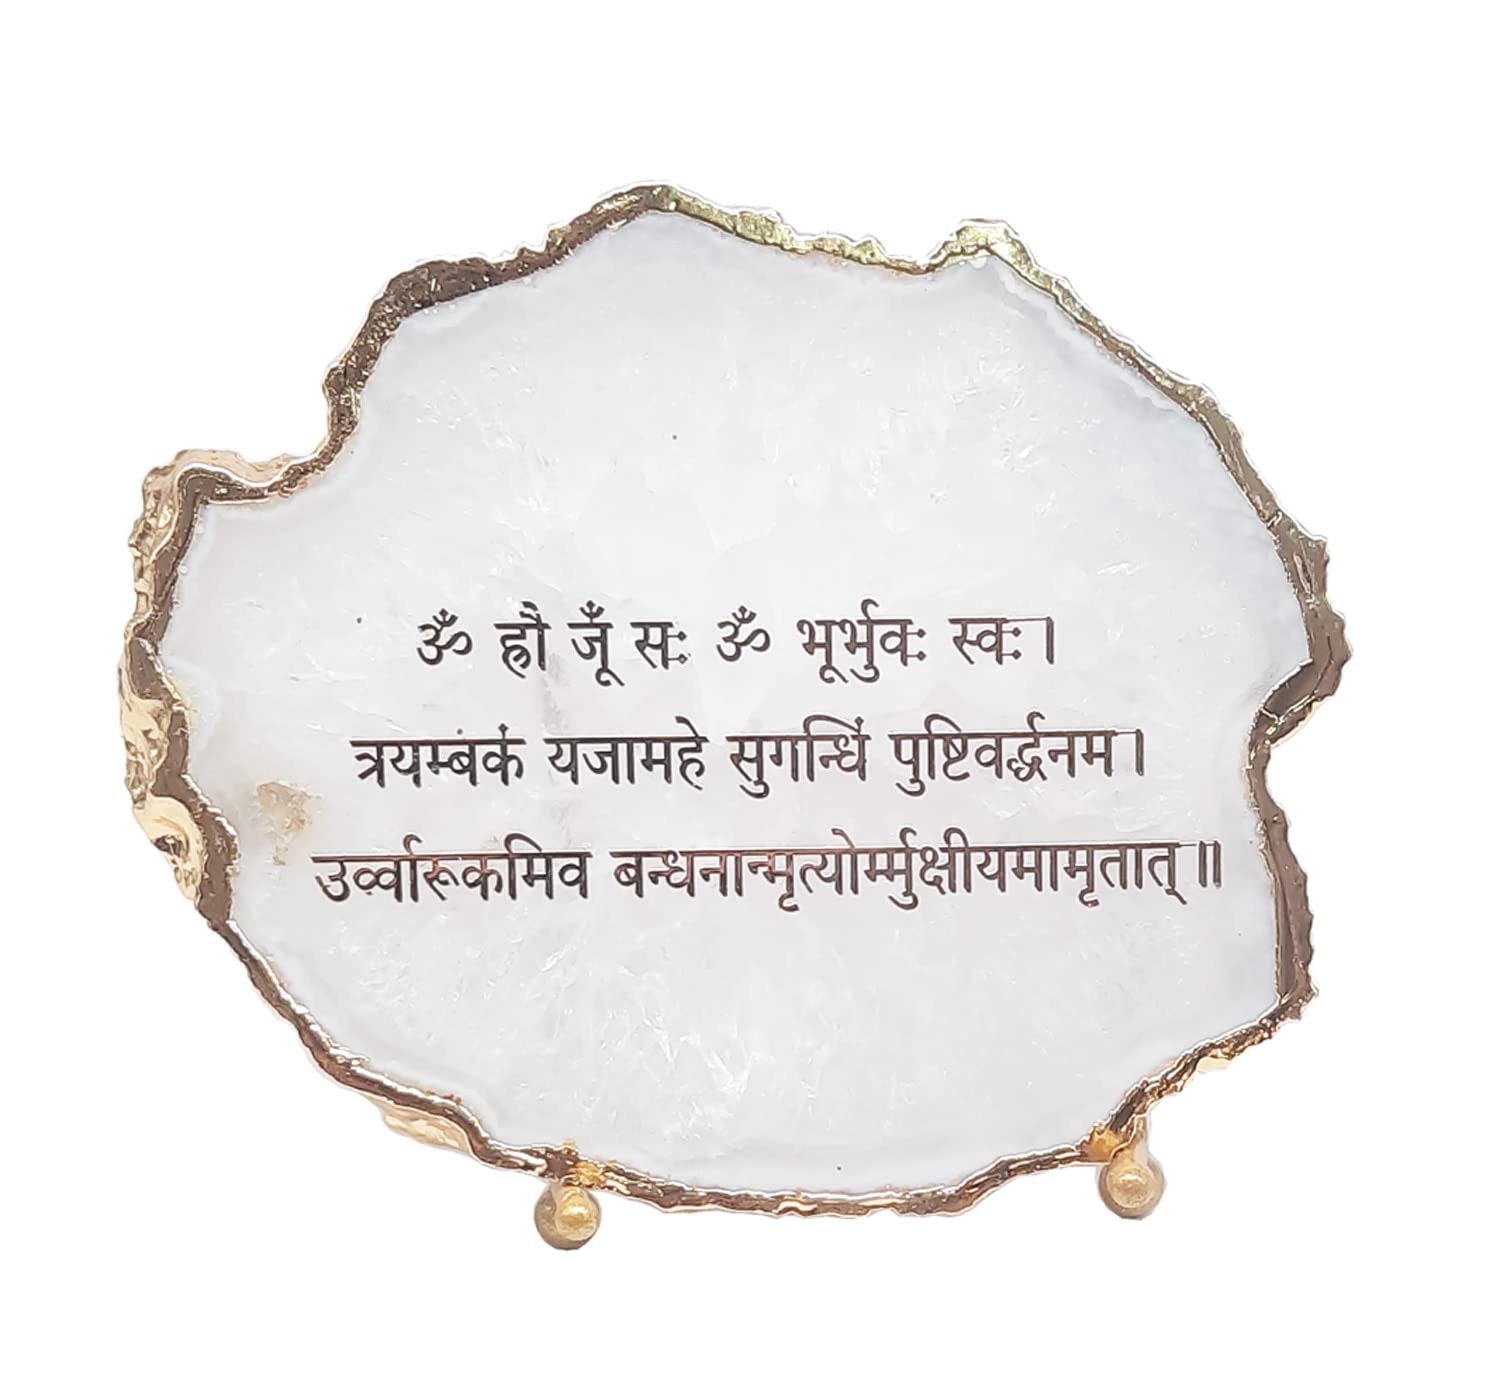 ॐ ह्रौ जूँ सः ॐ भूर्भुवः स्वः।
त्रयम्बकं यजामहे सुगन्धिं पुष्टिवर्द्धनम।
उर्व्वारूकमिव बन्धनान्मृत्योर्म्मुक्षीयमामृतात्॥